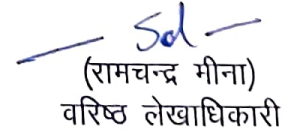 — Sd —
(रामचन्द्र मीना)
वरिष्ठ लेखाधिकारी